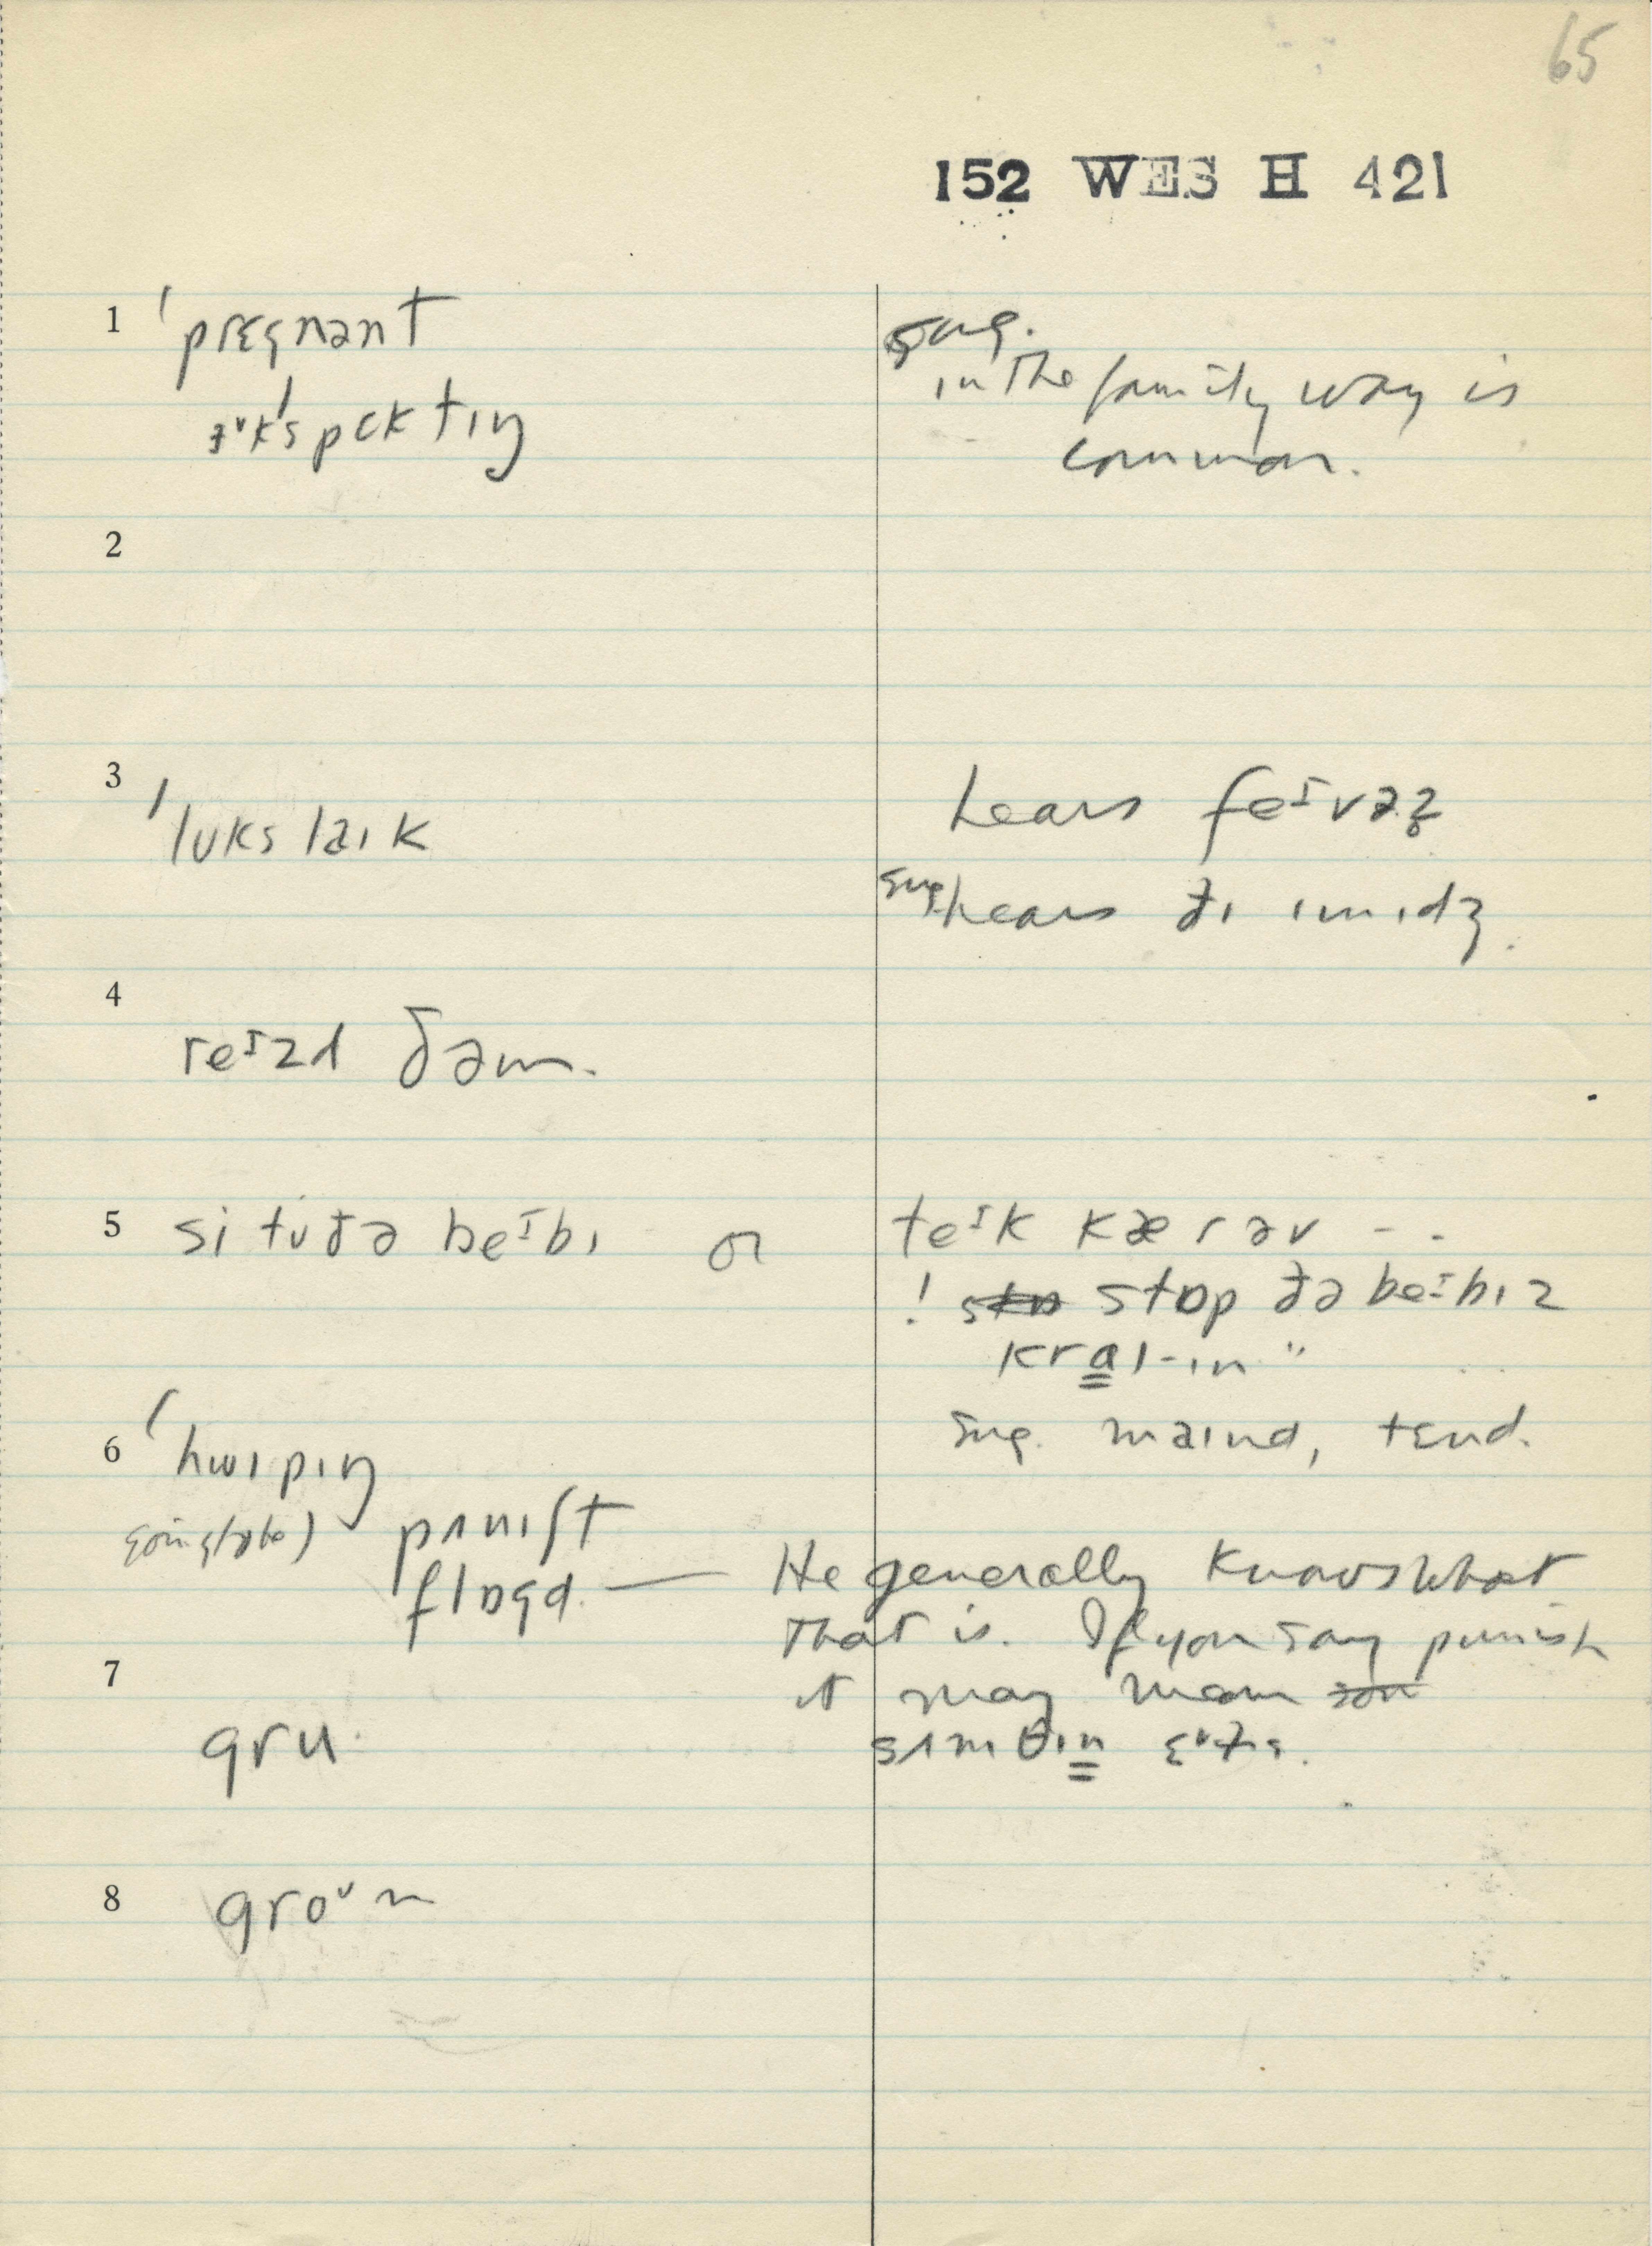 65
152 WES H 421
1 ˈprɛgnənt
sug.
in the family way is
ˈspɛktɪŋ
common.
2
3 ˈlʊks laɪk
hears feᶦvəz̥
sug. hears ðɪ ɪmɪdʒ.
4
reᶦzd ðəm.
5 si tʊ ðə beᶦbɪ or
teᶦk kær əv - -
! stɒp ðə beᶦbɪz
kral-ɪn "
sug. maɪnd, tɛnd.
6 ˈhwɪpɪŋ
pʌnɪʃt
flɒgd. — He generally knows what
that is. If you say punish
7
it may mean
gru.
sʌmθɪn
8 groᶷn